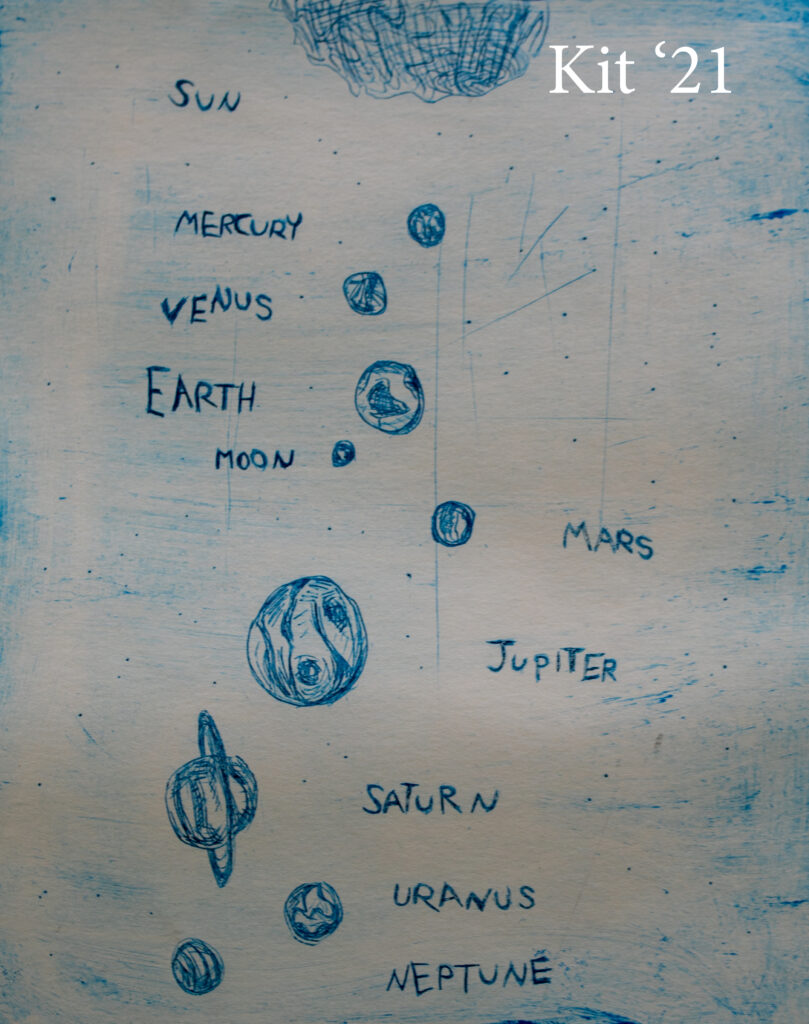 Kit ‘21
SUN
MERCURY
VENUS
EARTH
MOON
MARS
JUPITER
SATURN
URANUS
NEPTUNE